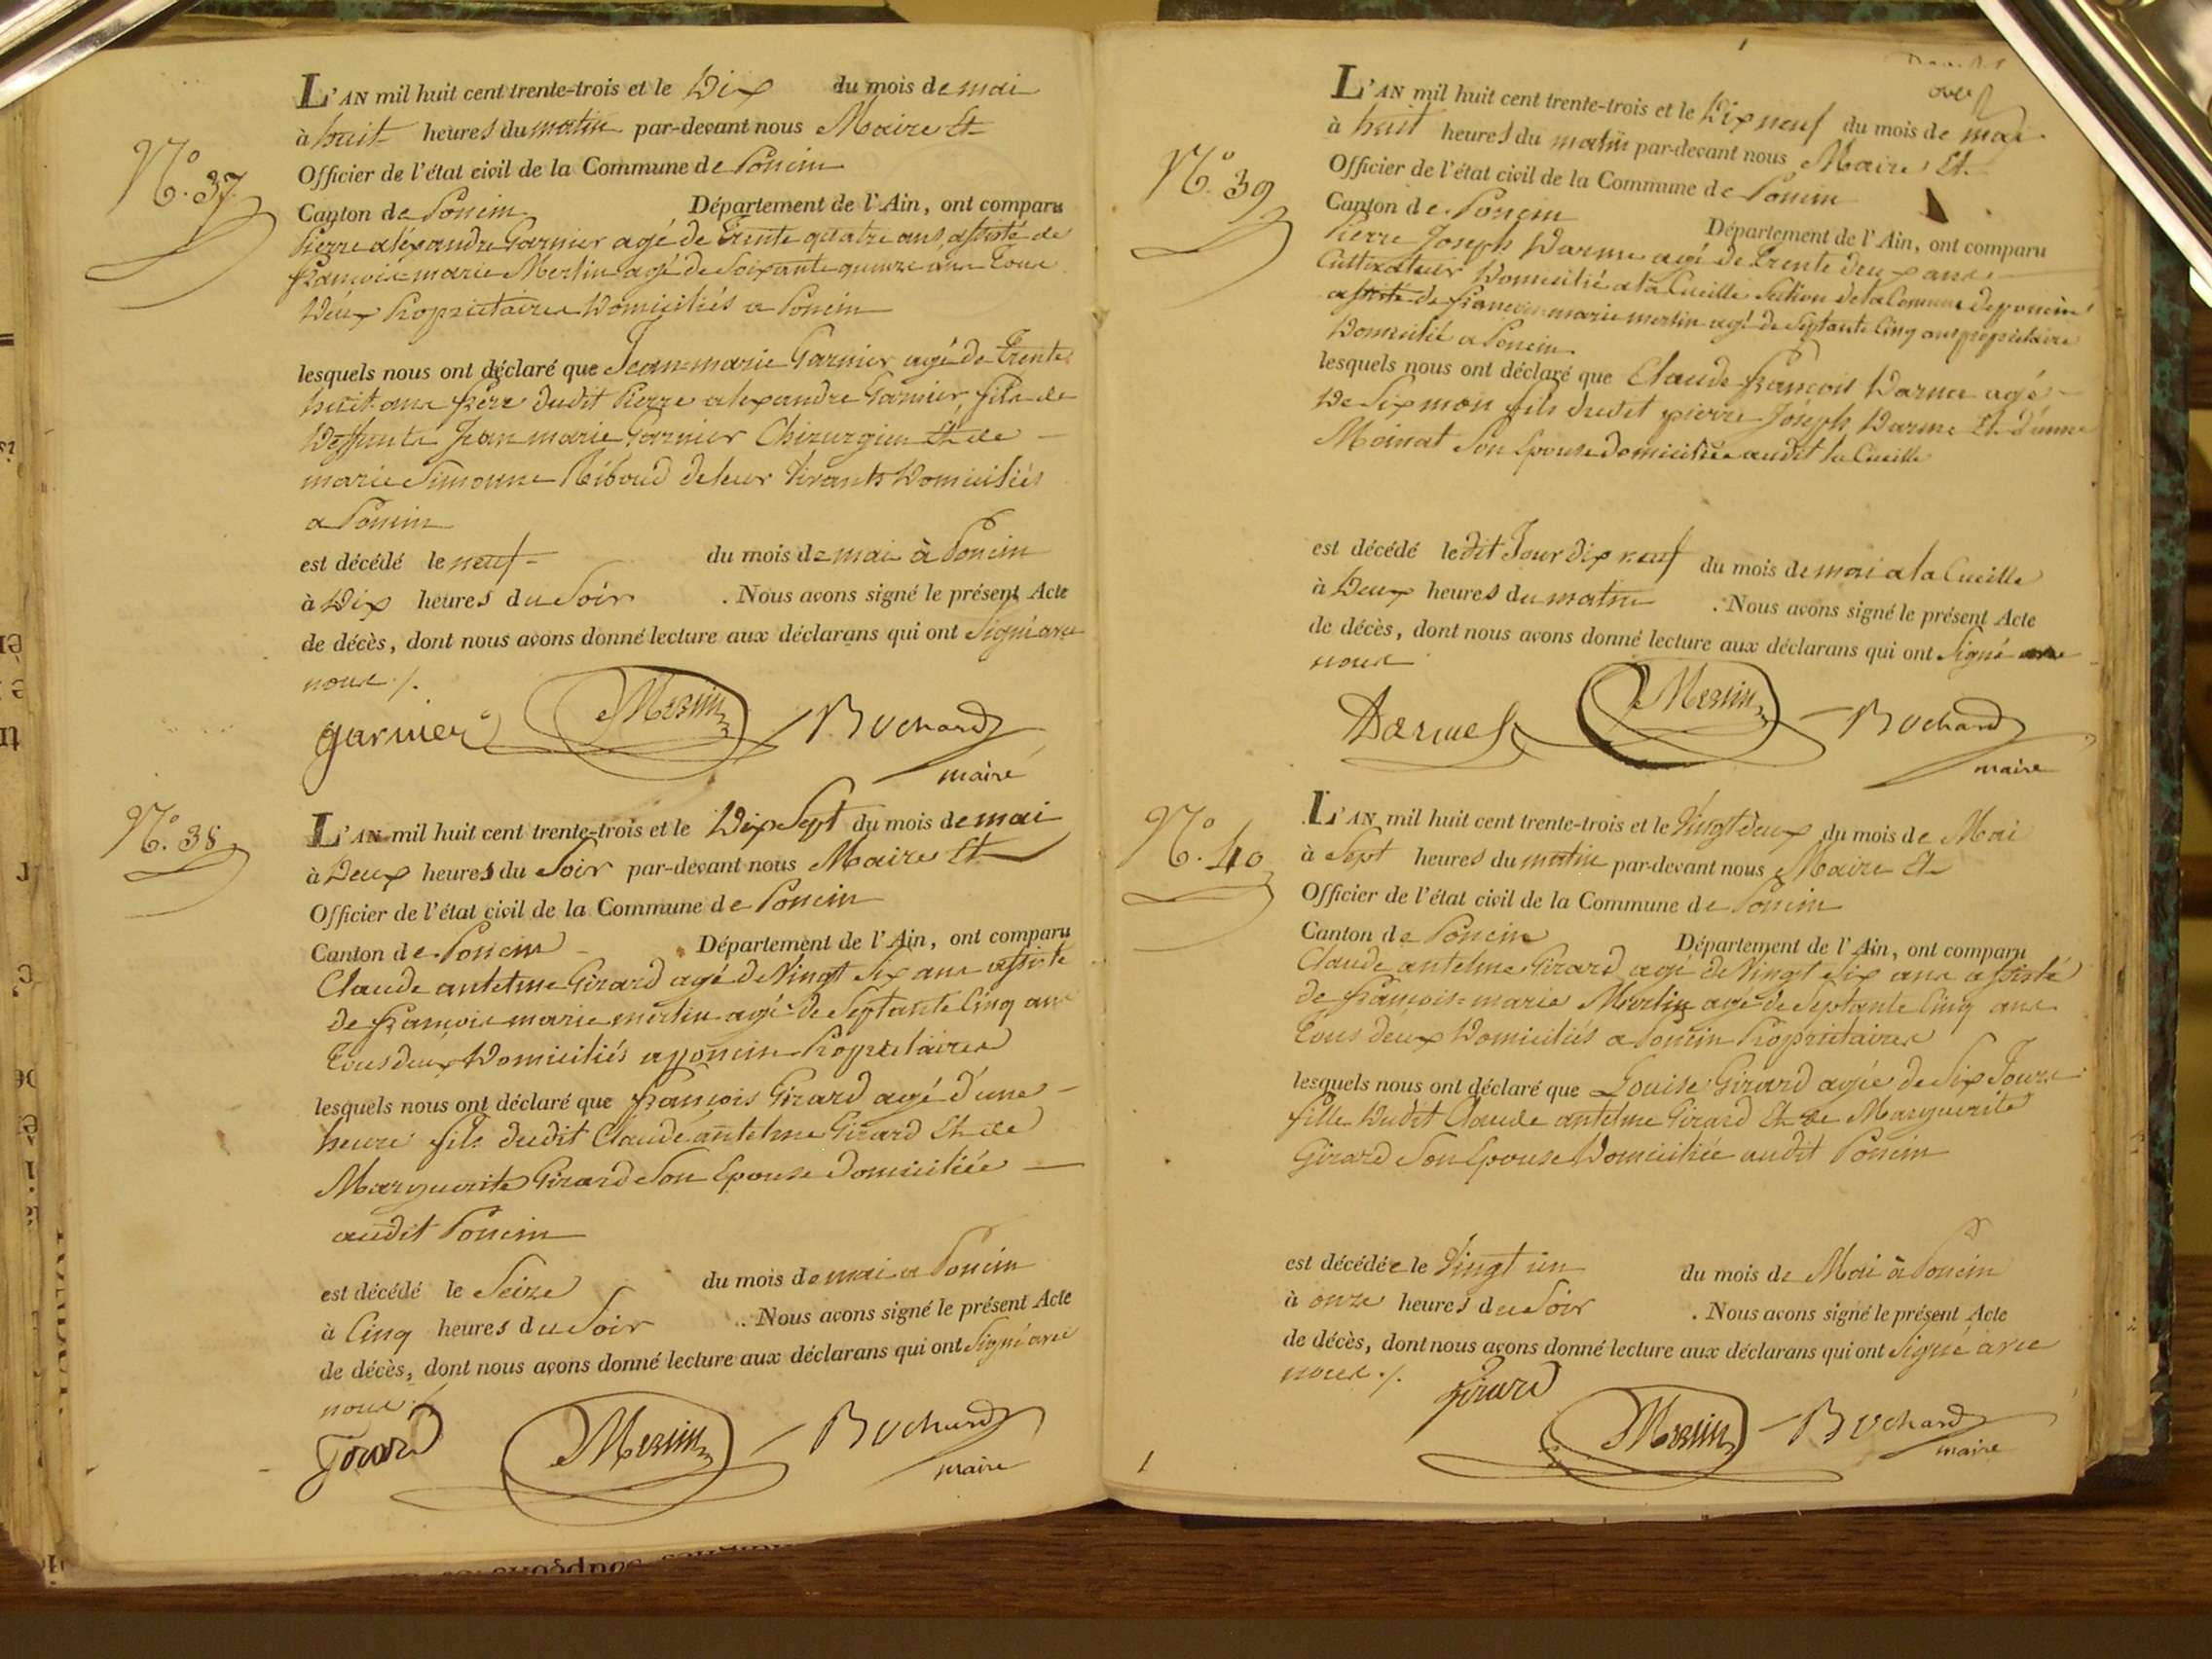 N.° 37.
L'AN mil huit cent trente-trois et le Dix du mois de mai
à huit heures du matin par-devant nous Maire Et
Officier de l'état civil de la Commune de Poncin
Canton de Poncin Département de l'Ain, ont comparu
Pierre aléxandre Garnier agé de Trente quatre ans, assisté de
françois marie Merlin agé de Soixante quinze ans Tous
Deux Propriétaires Domiciliés a Poncin
lesquels nous ont déclaré que Jean-marie Garnier agé de Trente
huit ans frère dudit Pierre alexandre Garnier, fils de
Deffunts Jean marie Garnier Chirurgien Et de
marie Simonne Riboud de leur Vivants Domiciliés
a Poncin
est décédé le neuf du mois de mai à Poncin
à Dix heures du Soir . Nous avons signé le présent Acte
de décès, dont nous avons donné lecture aux déclarans qui ont Signé avec
nous ./.
garnier Merlin Bochard
maire
N.° 38
L'AN mil huit cent trente-trois et le Dix Sept du mois de mai
à Deux heures du Soir par-devant nous Maire Et
Officier de l'état civil de la Commune de Poncin
Canton de Poncin Département de l'Ain, ont comparu
Claude antelme Girard agé de Vingt Six ans assisté
de françois marie merlin agé de Septante Cinq ans
Tous deux Domiciliés a poncin Propriétaires
lesquels nous ont déclaré que françois Girard agé d'une
heure fils dudit Claude antelme Girard Et de
Marguerite Girard Son Epouse Domiciliée
audit Poncin
est décédé le Seize du mois de mai a Poncin
à Cinq heures du Soir . Nous avons signé le présent Acte
de décès, dont nous avons donné lecture aux déclarans qui ont Signé avec
nous ./.
Girard Merlin Bochard
maire
N.° 39
L'AN mil huit cent trente-trois et le Dix neuf du mois de mai
à huit heures du matin par-devant nous Maire Et
Officier de l'état civil de la Commune de Poncin
Canton de Poncin Département de l'Ain, ont comparu
Pierre Joseph Darme agé de Trente deux ans
Cultivateur Domicilié a la Cueille Section de la Commune de poncin
assisté de françois marie merlin agé de Septante Cinq ans propriétaire
Domicilié a Poncin
lesquels nous ont déclaré que Claude françois Darme agé
De Six mois fils dudit pierre Joseph Darme Et d'anne
Moinat Son Epouse domiciliée audit la Cueille
est décédé ledit Jour dix neuf du mois de mai a la Cueille
à Deux heures du matin . Nous avons signé le présent Acte
de décès, dont nous avons donné lecture aux déclarans qui ont Signé avec
nous
Merlin Bochard
maire
N.° 40
L'AN mil huit cent trente-trois et le Vingt deux du mois de Mai
à Sept heures du matin par-devant nous Maire Et
Officier de l'état civil de la Commune de Poncin
Canton de Poncin Département de l'Ain, ont comparu
Claude antelme Girard agé de Vingt Six ans assisté
de françois-marie Merlin agé de Septante Cinq ans
Tous deux Domiciliés a Poncin Propriétaires
lesquels nous ont déclaré que Louise Girard agée de Six Jours
fille dudit Claude antelme Girard Et de Marguerite
Girard Son Epouse Domiciliée audit Poncin
est décédée le Vingt un du mois de Mai à Poncin
à onze heures du Soir . Nous avons signé le présent Acte
de décès, dont nous avons donné lecture aux déclarans qui ont Signé avec
nous ./.
Girard
Merlin Bochard
maire